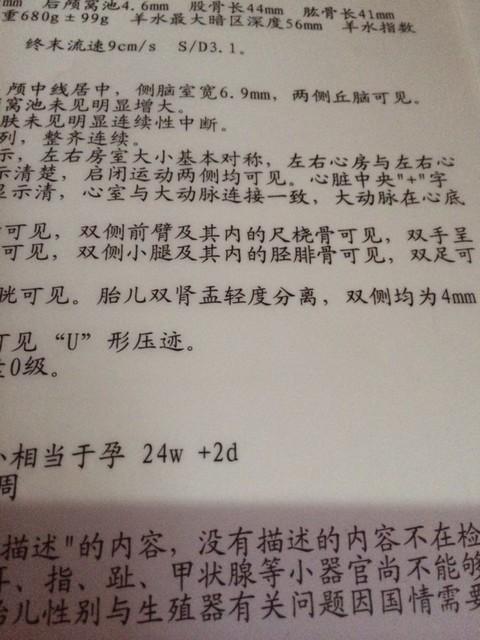 mm 后颅窝池4.6mm 股骨长44mm 肱骨长41mm
重680g±99g 羊水最大暗区深度56mm 羊水指数
终末流速9cm/s S/D3.1。
颅中线居中，侧脑室宽6.9mm，两侧丘脑可见。
窝池未见明显增大。
肤未见明显连续性中断。
列，整齐连续。
示，左右房室大小基本对称，左右心房与左右心
示清楚，启闭运动两侧均可见。心脏中央"+"字
显示清，心室与大动脉连接一致，大动脉在心底
可见，双侧前臂及其内的尺桡骨可见，双手呈
可见，双侧小腿及其内的胫腓骨可见，双足可
胱可见。胎儿双肾盂轻度分离，双侧均为4mm
可见“U”形压迹。
0级。
小相当于孕 24w +2d
周
描述"的内容，没有描述的内容不在检
耳、指、趾、甲状腺等小器官尚不能够
胎儿性别与生殖器有关问题因国情需要